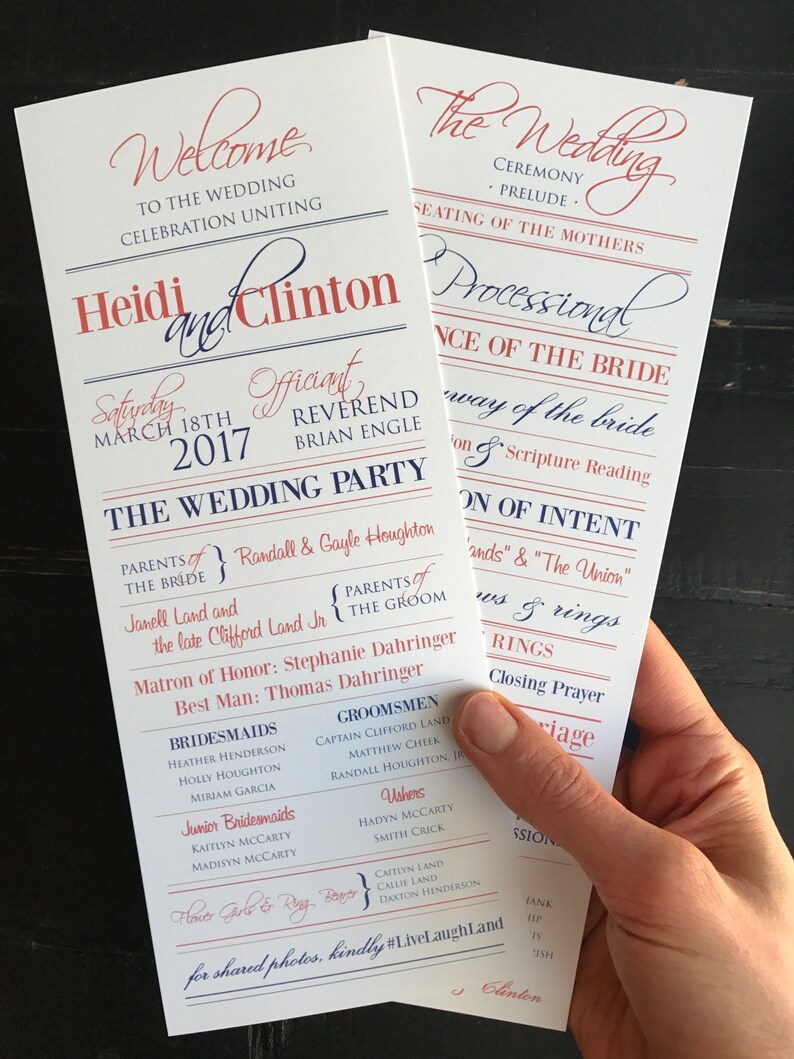 Welcome
TO THE WEDDING
CELEBRATION UNITING
Heidi and Clinton
Saturday
MARCH 18TH
2017
Officiant
REVEREND
BRIAN ENGLE
THE WEDDING PARTY
PARENTS of
THE BRIDE } Randall & Gayle Houghton
Janell Land and
the late Clifford Land Jr { PARENTS of
THE GROOM
Matron of Honor: Stephanie Dahringer
Best Man: Thomas Dahringer
BRIDESMAIDS
HEATHER HENDERSON
HOLLY HOUGHTON
MIRIAM GARCIA
GROOMSMEN
CAPTAIN CLIFFORD LAND
MATTHEW CHEEK
RANDALL HOUGHTON, JR
Junior Bridesmaids
KAITLYN MCCARTY
MADISYN MCCARTY
Ushers
HADYN MCCARTY
SMITH CRICK
Flower Girls & Ring Bearer }
CAITLYN LAND
CALLIE LAND
DAXTON HENDERSON
for shared photos, kindly #LiveLaughLand
The Wedding
CEREMONY
· PRELUDE ·
SEATING OF THE MOTHERS
Processional
NCE OF THE BRIDE
way of the bride
ion & Scripture Reading
ON OF INTENT
ands" & "The Union"
ws & rings
RINGS
Closing Prayer
riage
SSION
HANK
HIP
IS
ISH
Clinton